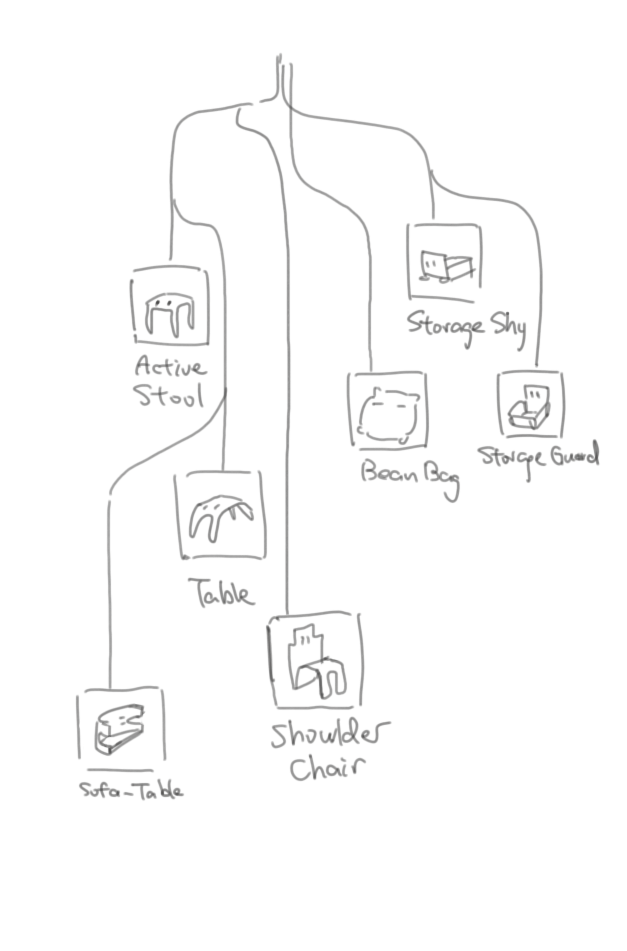 Storage Shy
Active
Stool
Bean Bag
Storage Guard
Table
Shoulder
Chair
Sofa-Table